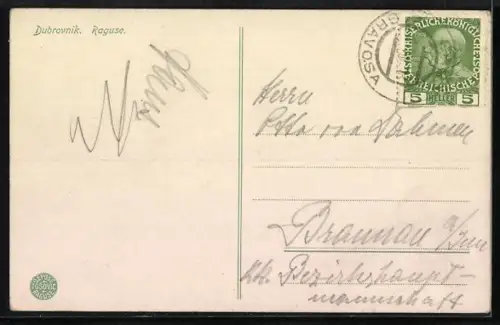 Dubrovnik. Raguse.
GRAVOSA
KAISERLICHE KÖNIGLICHE ÖSTERREICHISCHE POST
5 HELLER 5
Herrn
Otto von Dahmen
Braunau a/Inn
k.k. Bezirkshaupt-
mannschaft